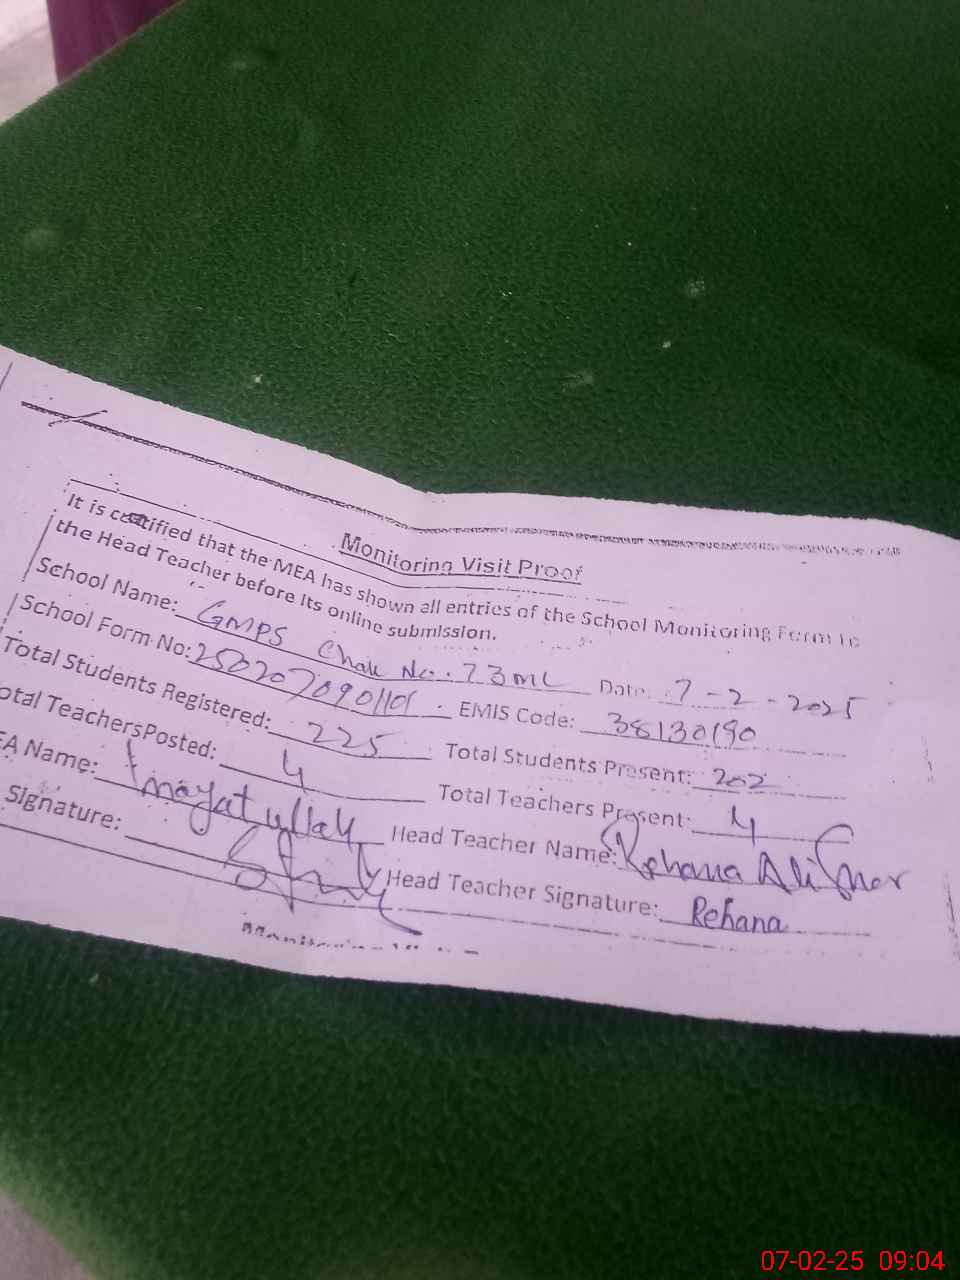 Monitoring Visit Proof
It is certified that the MEA has shown all entries of the School Monitoring Form to
the Head Teacher before its online submission.
School Name: GMPS Chak No. 73ML Date: 7-2-2025
School Form No: 250207090101 EMIS Code: 38130190
Total Students Registered: 225 Total Students Present: 202
otal TeachersPosted: 4 Total Teachers Present: 4
EA Name: Inayatullah Head Teacher Name: Rehana Ali
Signature: Head Teacher Signature: Rehana
07-02-25 09:04